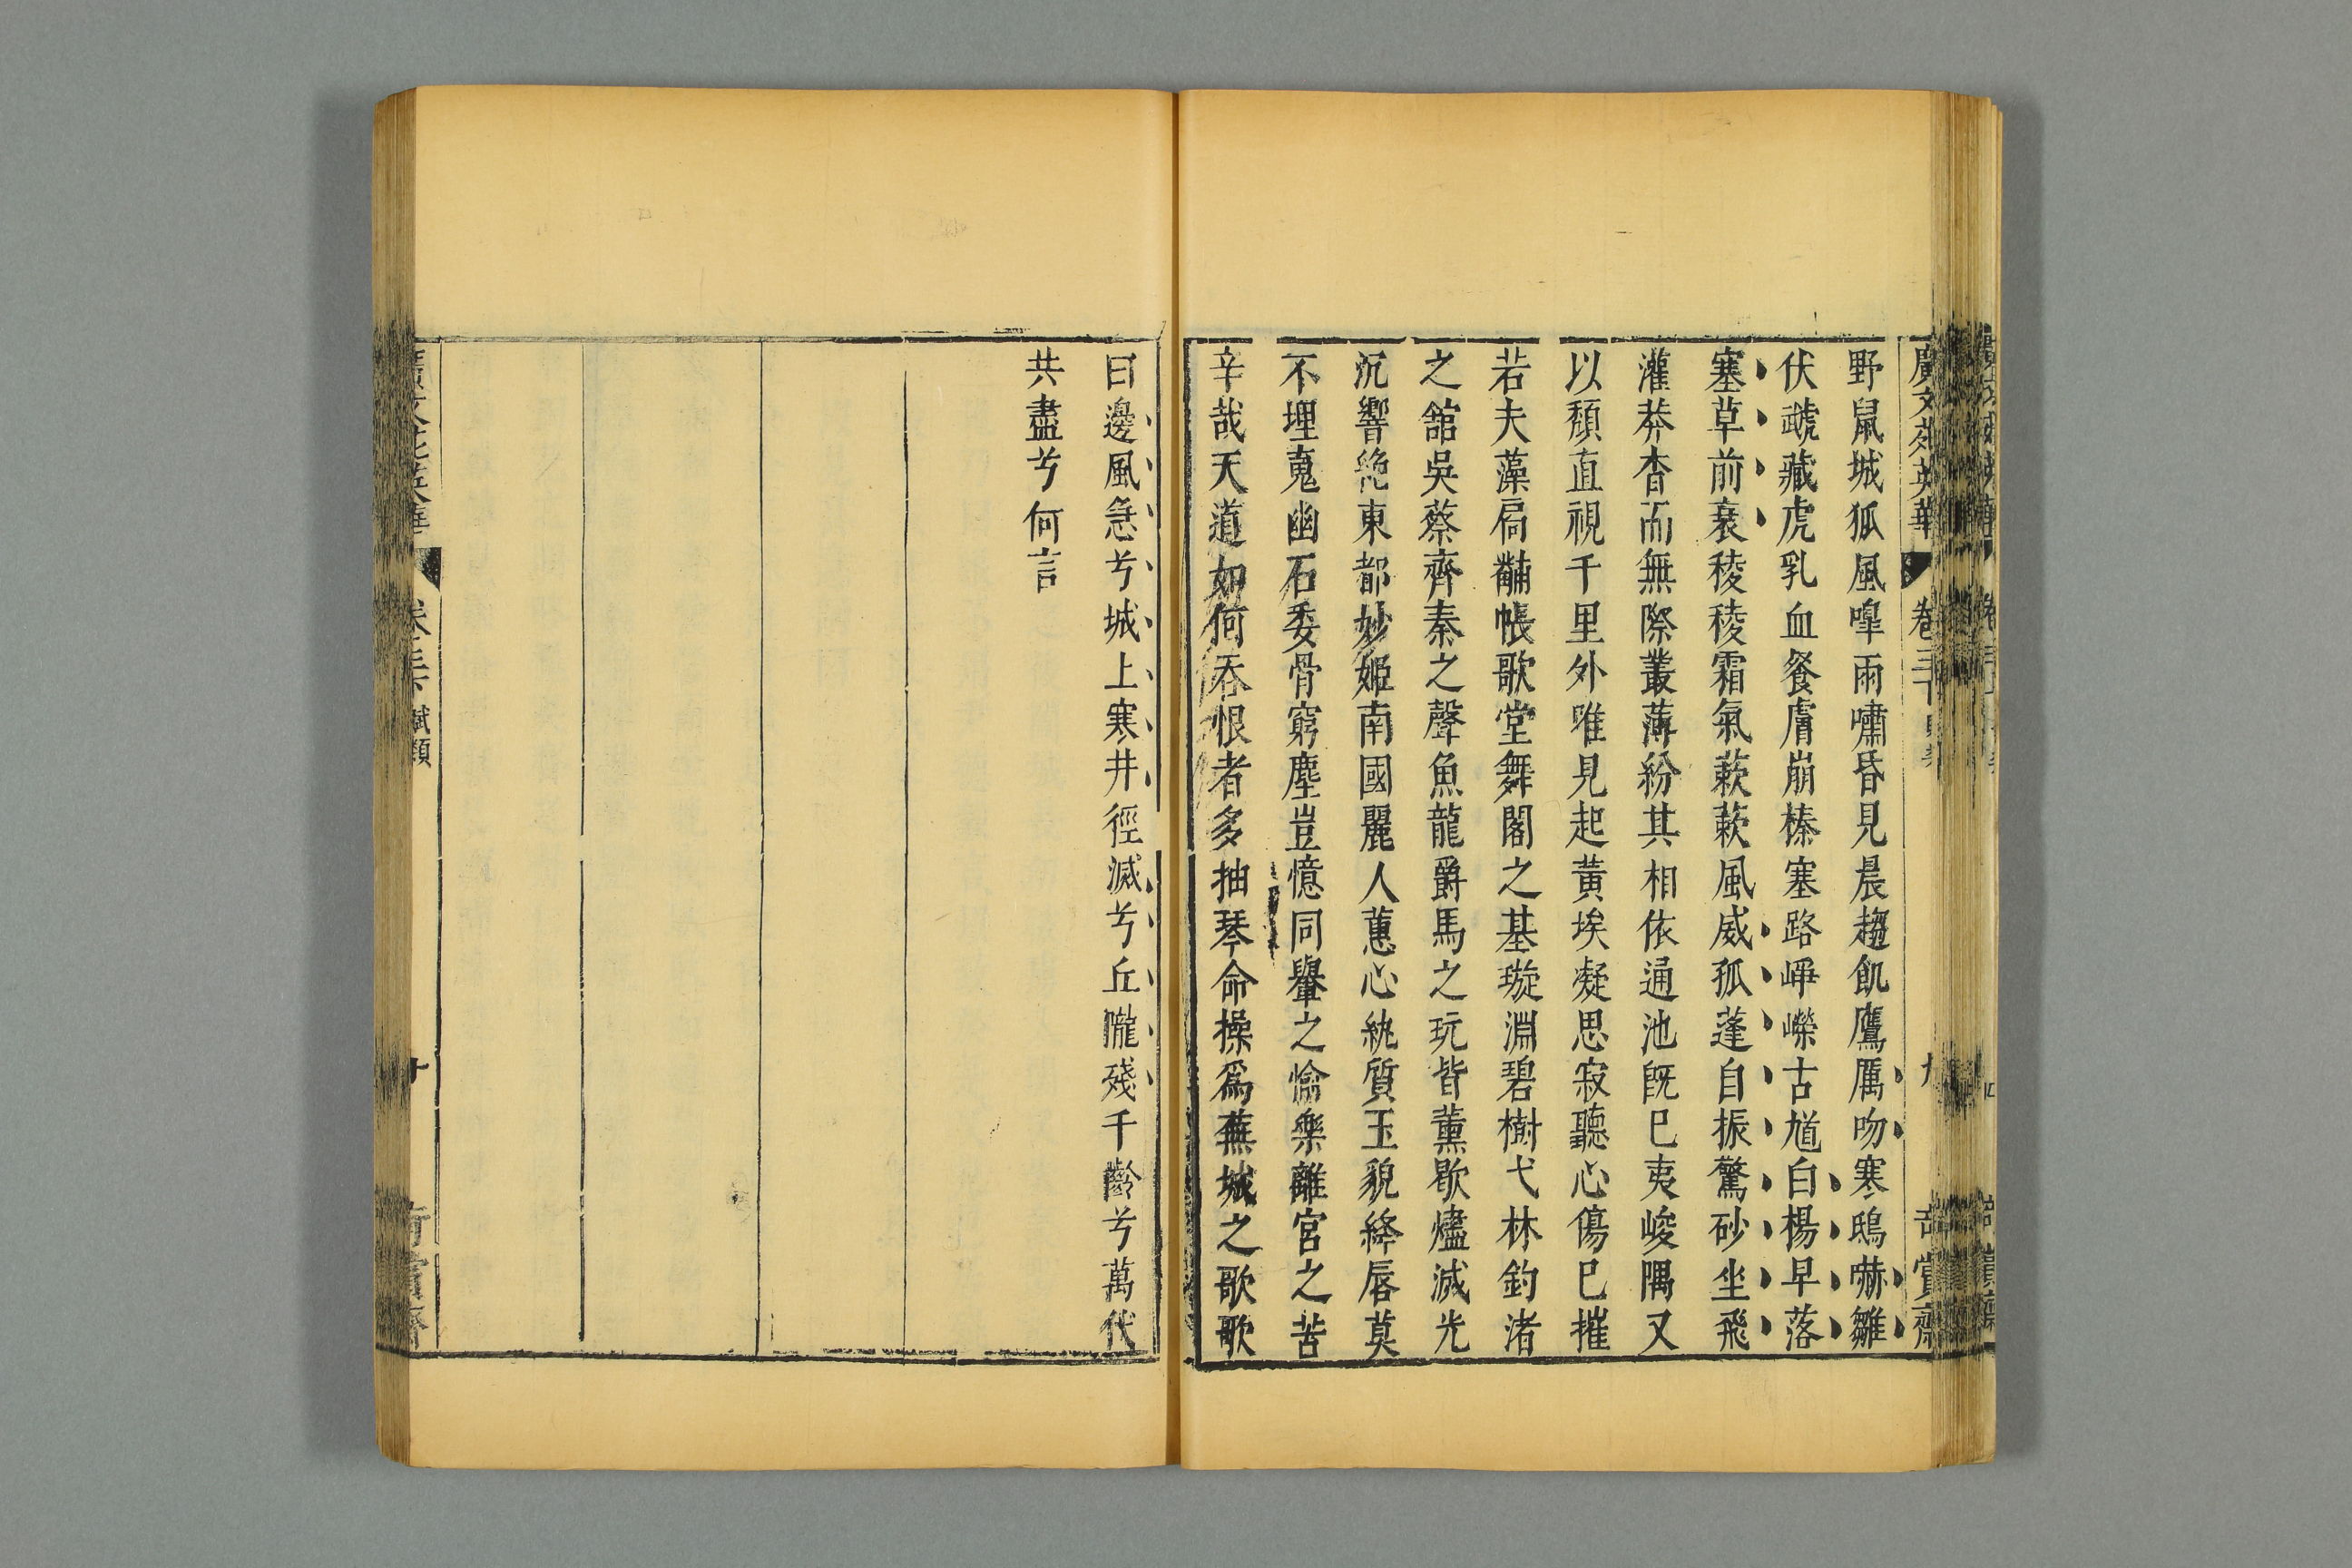 野鼠城狐風嘷雨嘯昏見晨趨飢鷹厲吻寒鴟嚇雛
伏虣藏虎乳血飡膚崩榛塞路崢嶸古馗白楊早落
塞草前衰稜稜霜氣蔌蔌風威孤蓬自振驚砂坐飛
灌莽杳而無際叢薄紛其相依通池旣已夷峻隅又
以頹直視千里外唯見起黃埃凝思寂聽心傷已摧
若夫藻扃黼帳歌堂舞閣之基璇淵碧樹弋林釣渚
之舘吳蔡齊秦之聲魚龍爵馬之玩皆薰歇燼滅光
沉響絶東都妙姬南國麗人蕙心紈質玉貌絳唇莫
不埋䰟幽石委骨窮塵豈憶同轝之愉樂離宮之苦
辛哉天道如何吞恨者多抽琴命操爲蕪城之歌歌
曰邊風急兮城上寒井徑滅兮丘隴殘千齡兮萬代
共盡兮何言